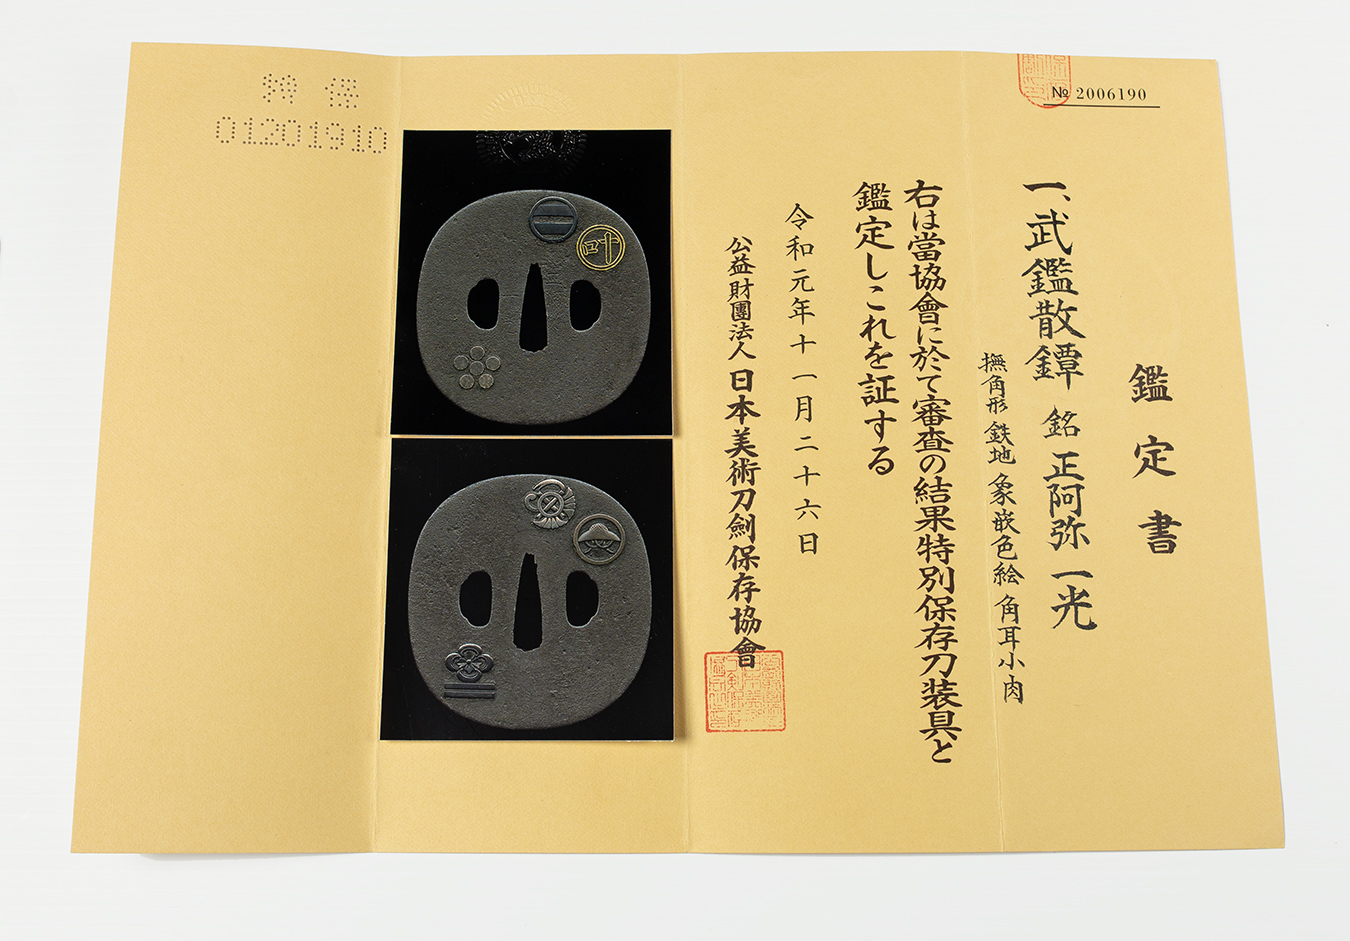 № 2006190
鑑定書
一、武鑑散鐔 銘 正阿弥一光
撫角形 鉄地 象嵌色絵 角耳小肉
右は當協會に於て審査の結果特別保存刀装具と
鑑定しこれを証する
令和元年十一月二十六日
公益財團法人 日本美術刀劍保存協會
特保
01201910